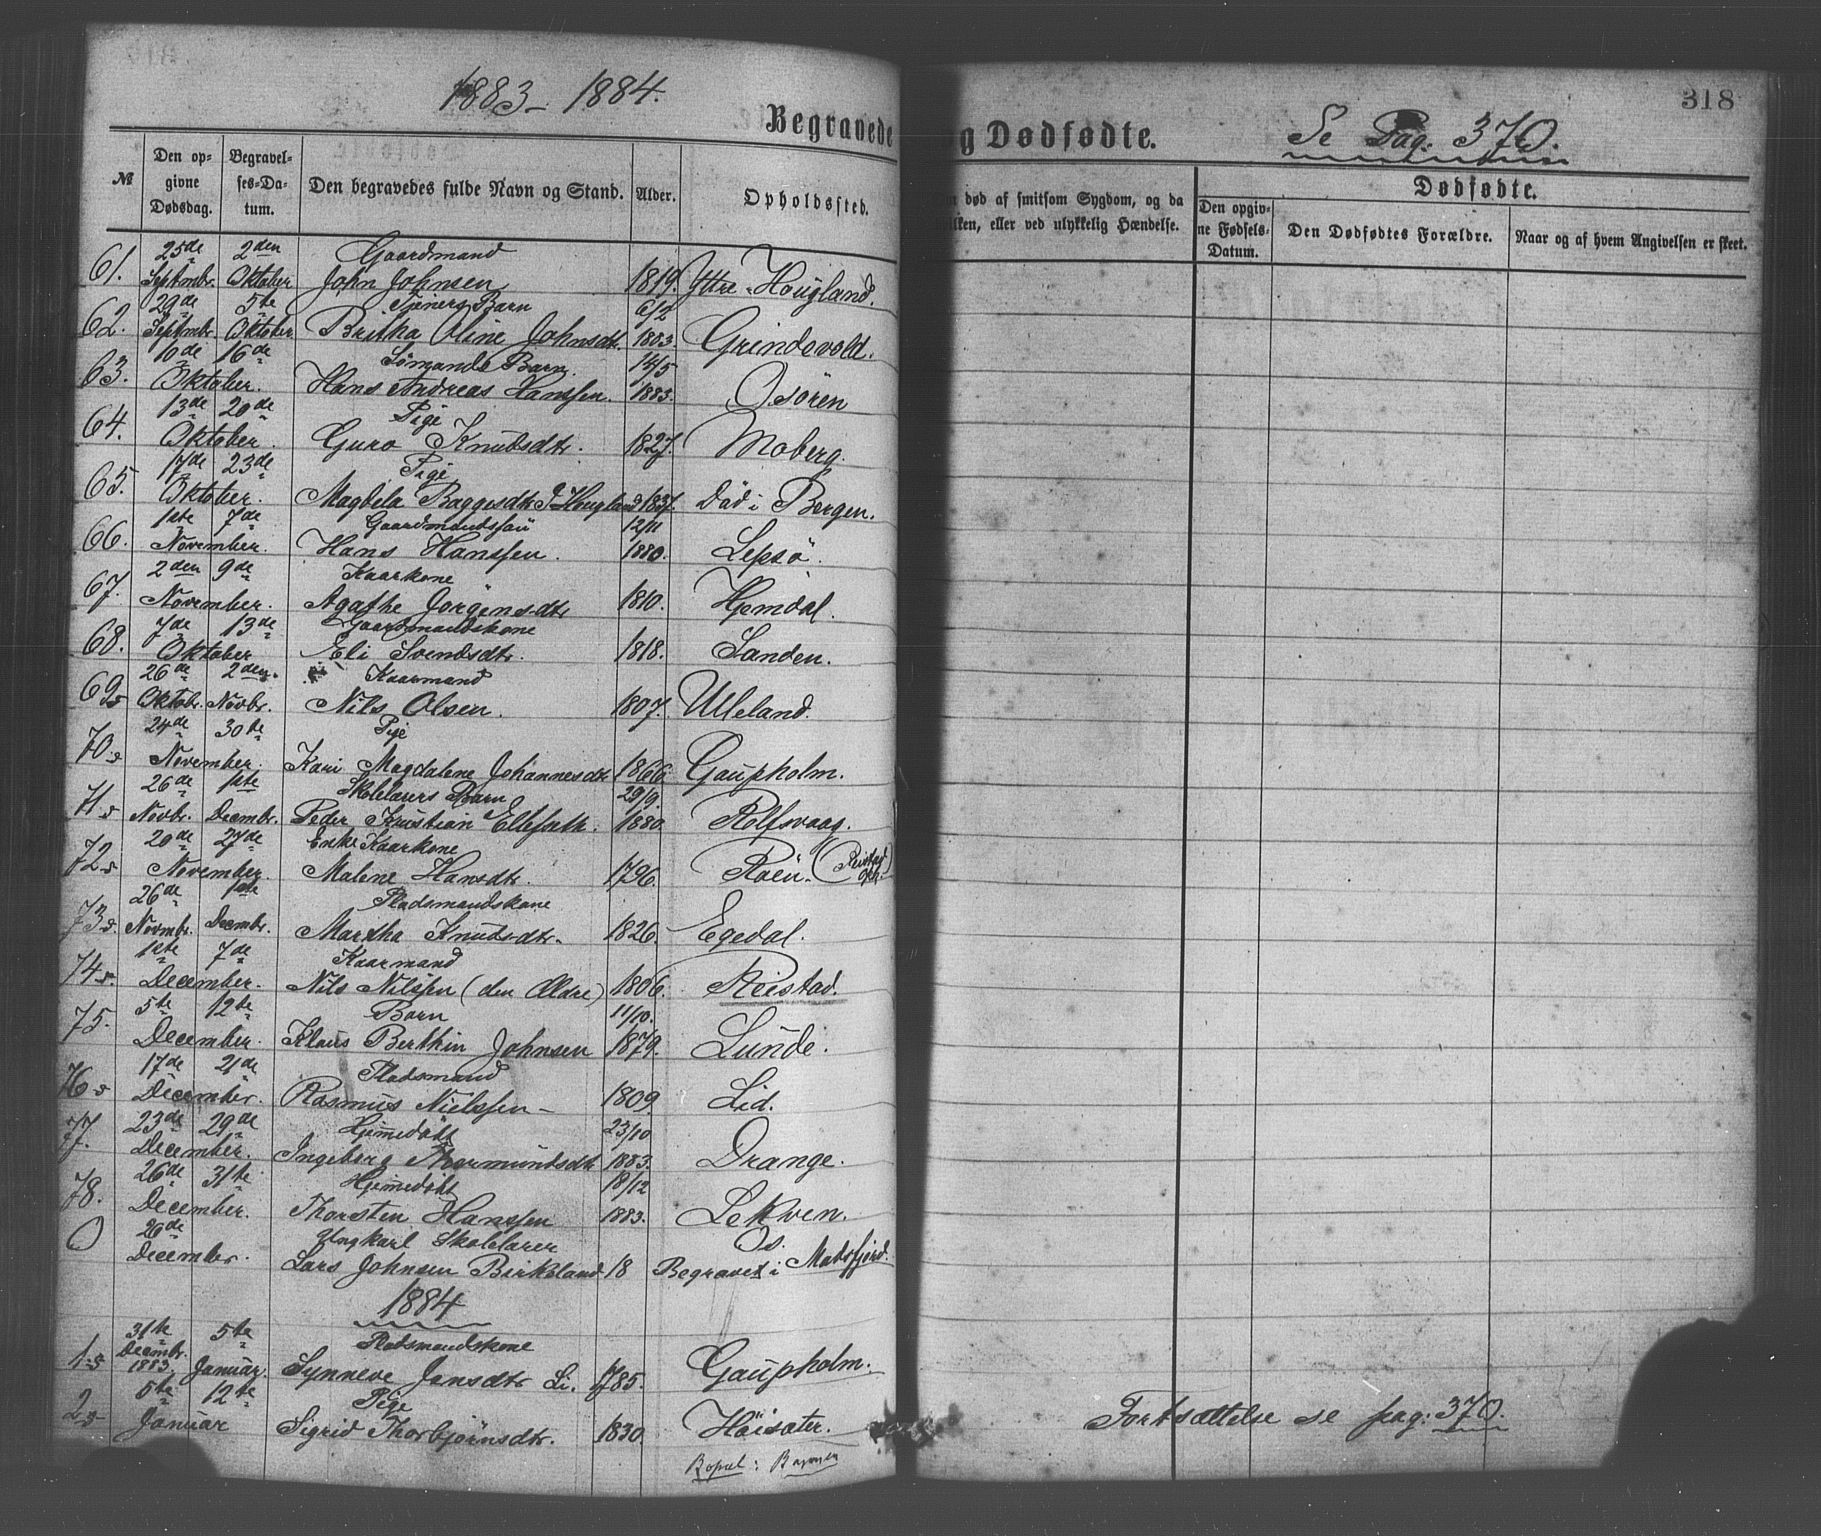 1883- 1884.
318
Begravede og Dødfødte.
Se Pag: 370.
№
Den opgivne Dødsdag.
Begravelses-Datum.
Den begravedes fulde Navn og Stand.
Alder.
Opholdssted.
død af smitsom Sygdom, og da
ilken, eller ved ulykkelig Hændelse.
Dødfødte.
Den opgivne Fødsels-Datum.
Den Dødfødtes Forældre.
Naar og af hvem Angivelsen er skeet.
25de 2den Gaardmand
61. Septmbr. Oktober John Johnsen 1819. Yttre Hougland.
29de 5te Tjeners Barn 6/2
62. Septmbr. Oktober Britha Oline Johnsdtr. 1883. Grindevold.
10de 16de Sømands Barn. 14/5
63. Oktober. Hans Andreas Hansen. 1883. Osören
13de 20de Pige
64. Oktober. Guro Knudsdtr. 1827. Moberg.
17de 23de Pige
65. Oktober. Magdela Baggesdtr Hougland 1837. Död i Bergen.
1ste 7de Gaardmandssön 12/11
66. November. Hans Hanssen. 1880. Lepsö.
2den 9de Kaarkone
67. November. Agathe Jörgensdtr 1810. Hjemdal.
7de 13de Gaardmandskone
68. Oktober Eli Svendsdtr. 1818. Sanden.
26de 2den. Kaarmand
69. Oktobr. Novbr. Nils Olsen. 1807. Ulleland.
24de 30te Pige
70. November. Kari Magdalene Johannesdtr 1866. Gaupholm.
26de 1ste Skolelærers Barn 29/9.
71. Novbr. Decmbr. Peder Kristian Ellefseth. 1880. Rolfsvaag.
20de 27de Enke Kaarkone
72. November. Malene Hansdtr. 1796. Röen. (Reistad
26de 1ste Pladsmandskone
73. Novmbr. Decmbr. Martha Knudsdtr. 1826. Egedal.
1ste 7de Kaarmand
74. December. Nils Nilssen (den Ældre) 1806. Reistad.
5te 12te Barn 11/10.
75. December. Klaus Berthin Johnsen 1879. Lunde.
17de 21de Pladsmand
76. December. Rasmus Nielssen - 1809 Lid.
23de 29de Hjemmedöbt 23/10
77. December. Ingeborg Thormundsdtr 1883. Drange.
26de 31te Hjemmedöbt 18/12
78. December. Thorsten Hanssen 1883. Lekven.
0 26de Ungkarl Skolelærer Os.
December. Lars Johnsen Birkeland 18 Begravet i Matrefjord.
1884
31te 5te Pladsmandskone
1. Decmbr. 1883. Januar. Synneve Jensdtr Li. 1785. Gaupholm.
5te 12te Pige
2. Januar Sigrid Thorbjörnsdtr. 1830. Höisæter.
Bopæl: Bergen
Fortsættelse se pag: 370.